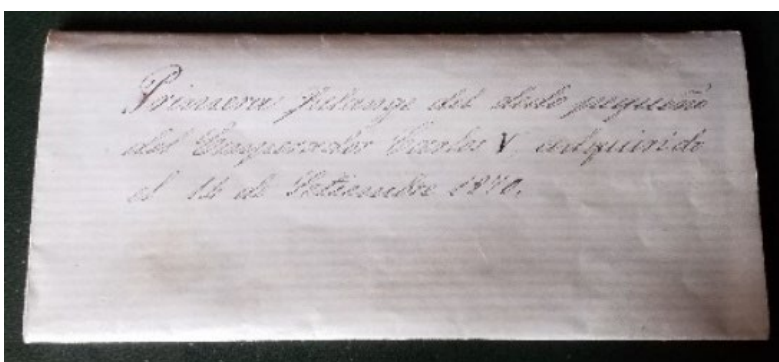 Primera falange del dedo pequeño
del Emperador Carlos V adquirido
el 14 de Setiembre 1870.